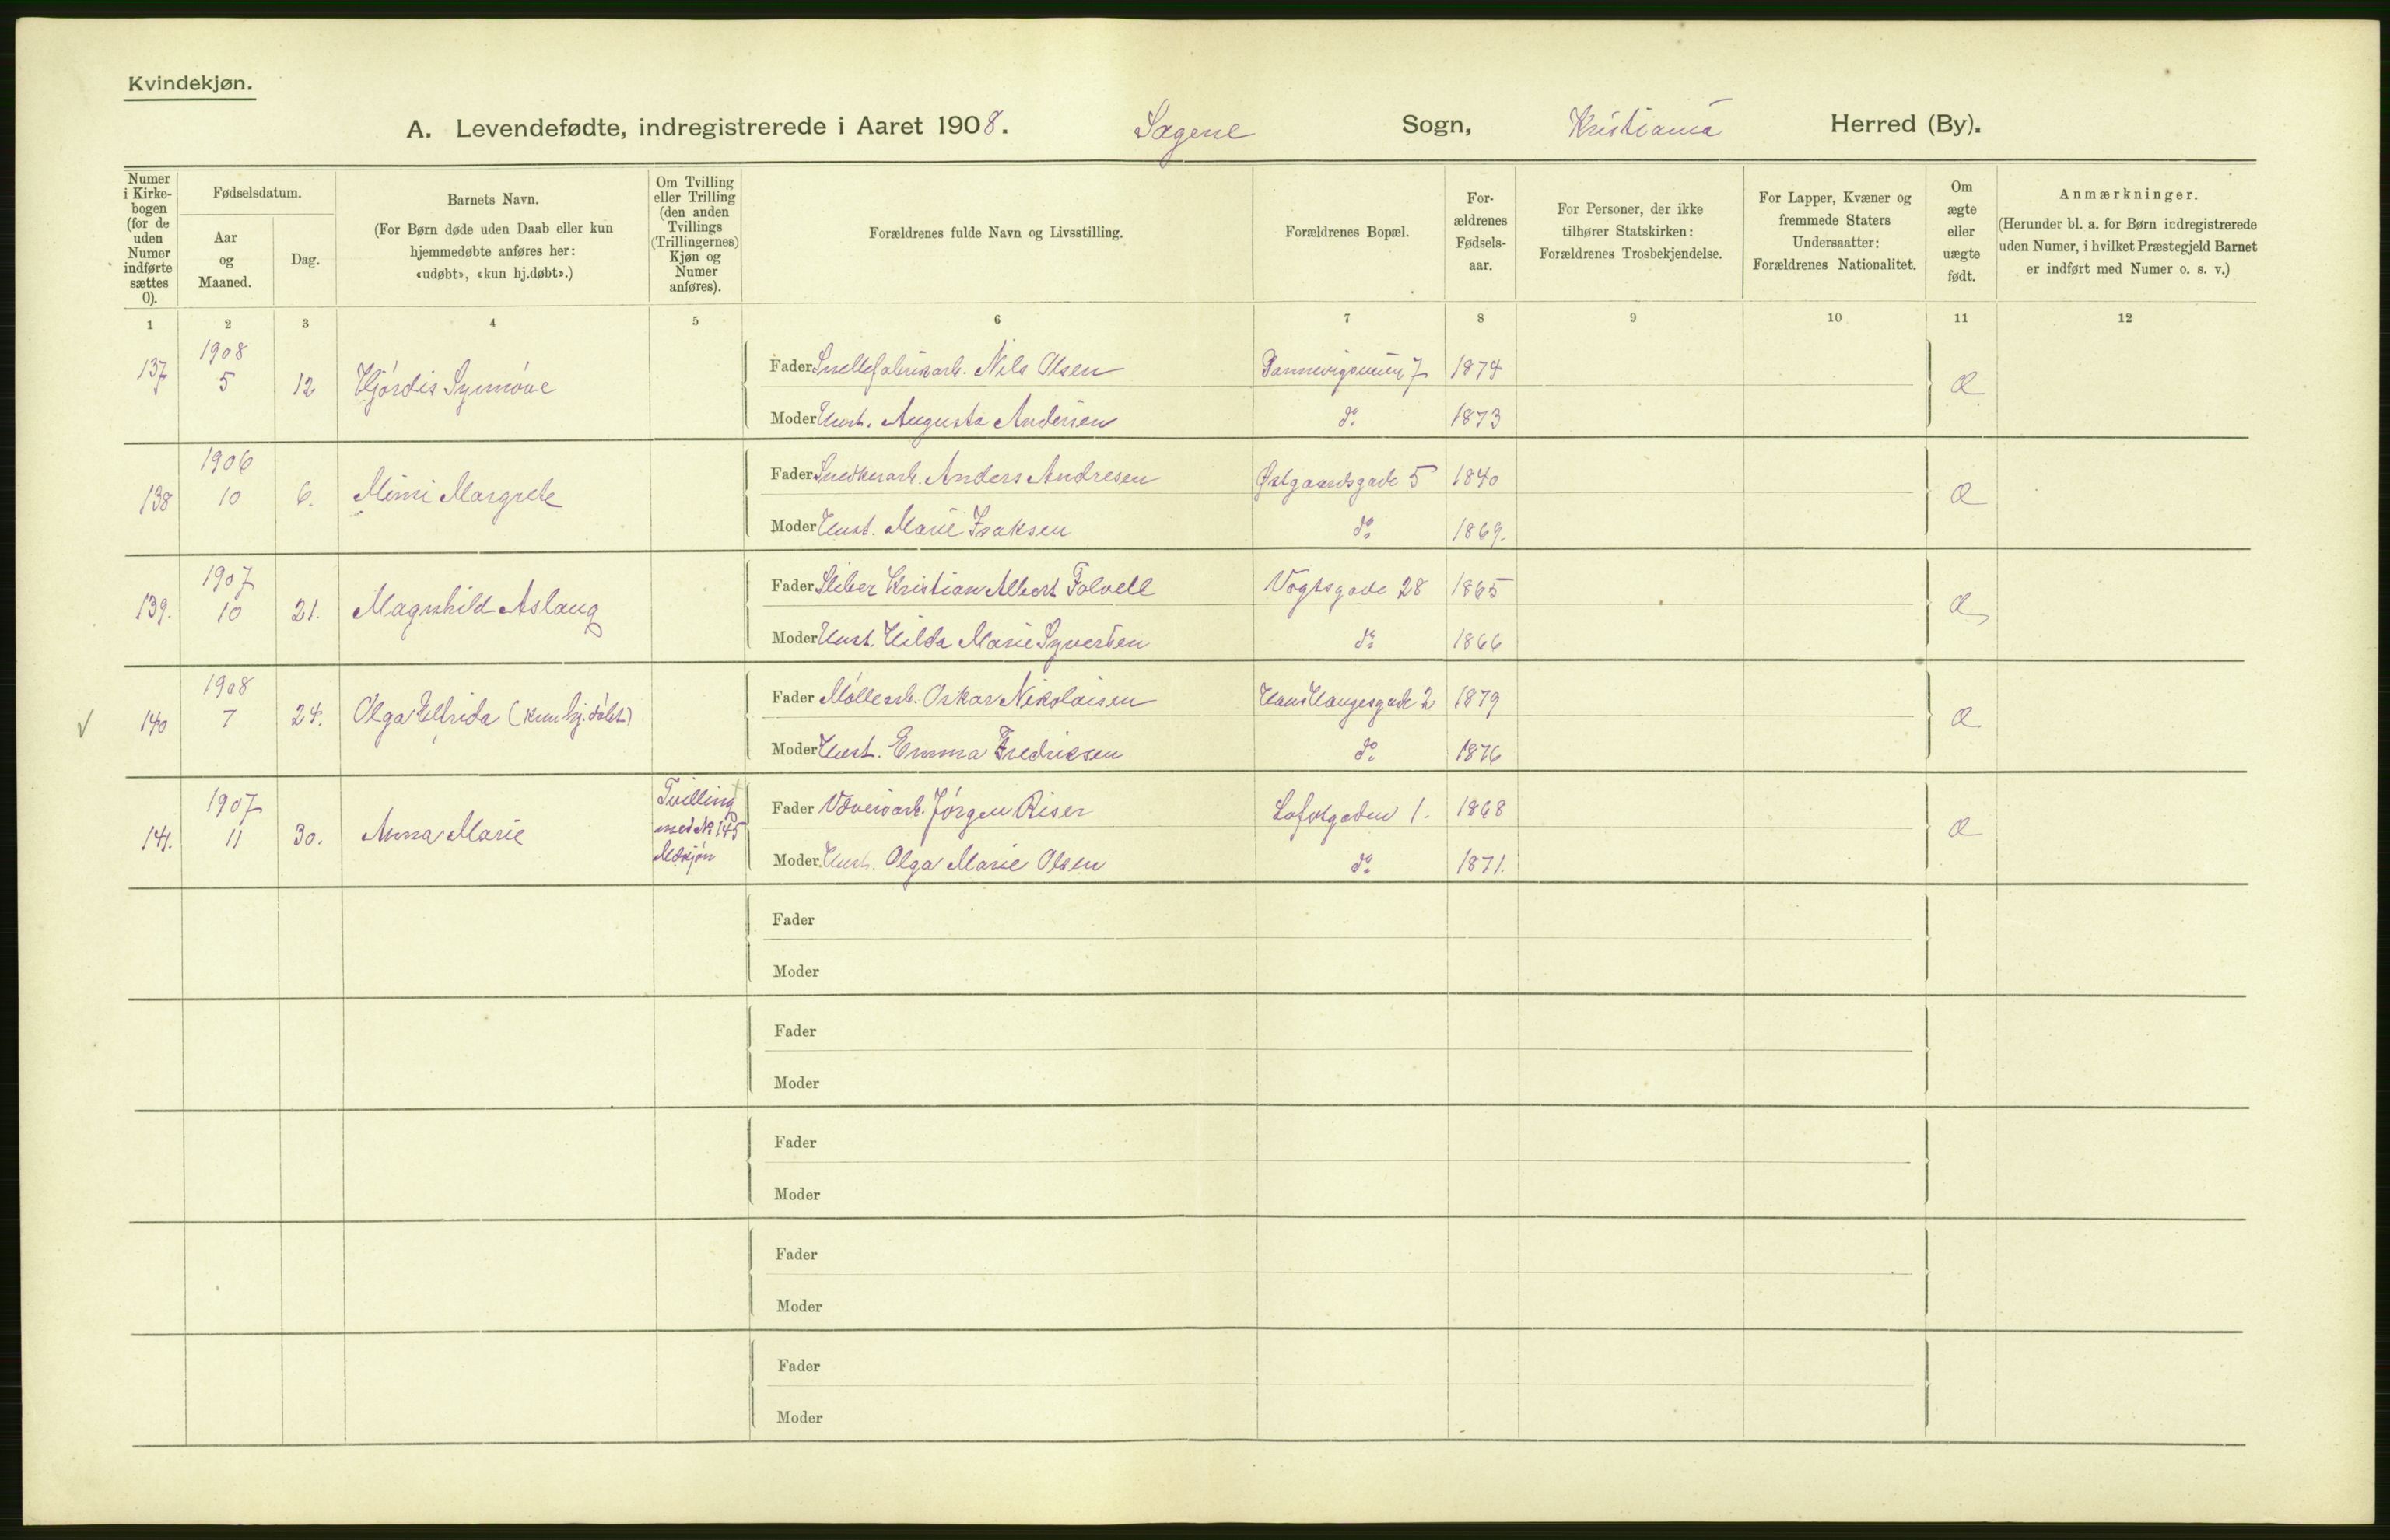 Kvindekjøn.
A. Levendefødte, indregistrerede i Aaret 1908. Sagene Sogn, Kristiania Herred (By).
Numer i Kirke-bogen (for de uden Numer indførte sættes 0).
Fødselsdatum.
Aar og Maaned.
Dag.
Barnets Navn.
(For Børn døde uden Daab eller kun hjemmedøbte anføres her: «udøbt», «kun hj.døbt».)
Om Tvilling eller Trilling (den anden Tvillings (Trillingernes) Kjøn og Numer anføres).
Forældrenes fulde Navn og Livsstilling.
Forældrenes Bopæl.
For-ældrenes Fødsels-aar.
For Personer, der ikke tilhører Statskirken: Forældrenes Trosbekjendelse.
For Lapper, Kvæner og fremmede Staters Undersaatter: Forældrenes Nationalitet.
Om ægte eller uægte født.
Anmærkninger.
(Herunder bl. a. for Børn indregistrerede uden Numer, i hvilket Præstegjeld Barnet er indført med Numer o. s. v.)
1 2 3 4 5 6 7 8 9 10 11 12
137 1908 5 12 Hjördis Synnöve
Fader Snellefabrikarb. Nils Olsen Dannevigsveien 7 1874 Æ
Moder Hust. Augusta Andersen do. 1873
138 1906 10 6. Mimi Margrete
Fader Snedkerarb. Anders Andresen Østgaardsgade 5 1840 Æ
Moder Hust. Marie Isaksen do. 1869.
139. 1907 10 21. Magnhild Aslaug
Fader Sliber Kristian Albert Folvell Vogtsgade 28 1865 Æ
Moder Hust. Hilda Marie Syvertsen do. 1866
√ 140 1908 7 24. Olga Elfrida (kun hj. döbt)
Fader Möllearb. Oskar Nikolaisen Hans Haugesgade 2 1879 Æ
Moder Hust. Emma Fredriksen do. 1876
141. 1907 11 30. Anna Marie Tvilling med No 145 Mdkjön
Fader Væveriarb. Jörgen Riser Lofotgaden 1. 1868 Æ
Moder Hust. Olga Marie Olsen do. 1871.
Fader
Moder
Fader
Moder
Fader
Moder
Fader
Moder
Fader
Moder